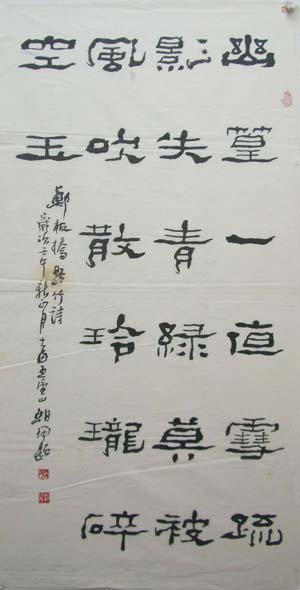 幽篁一值雪疏
影失青綠莫被
風吹散玲瓏碎
空玉
鄭板橋題竹詩
歲次壬午